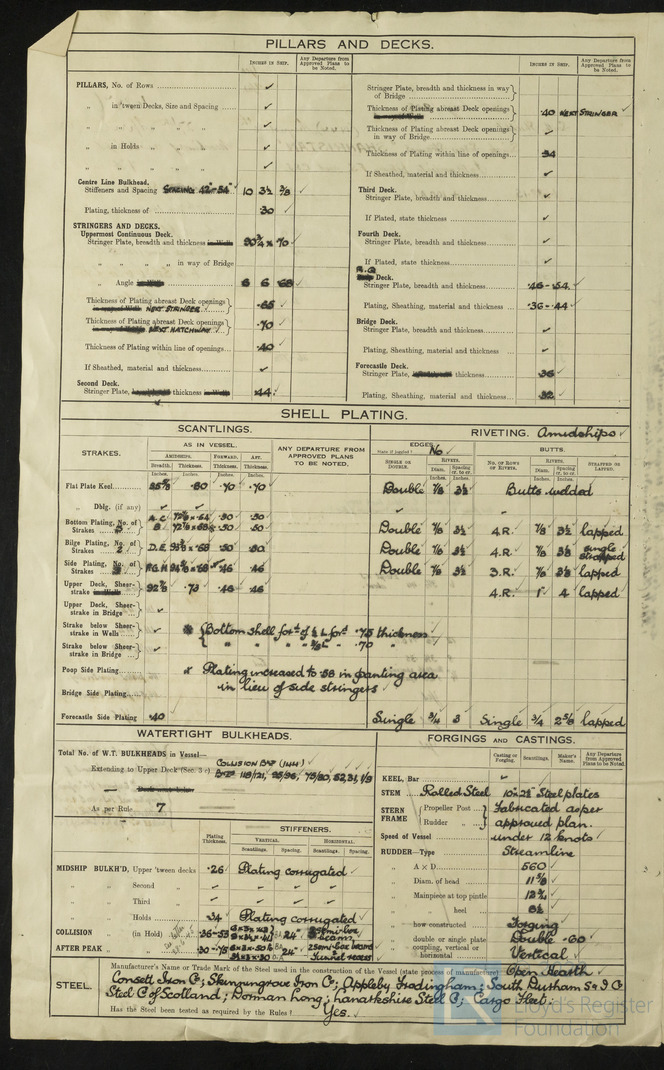 PILLARS AND DECKS.
INCHES IN SHIP.
Any Departure from Approved Plans to be Noted.
PILLARS, No. of Rows ✓
„ in 'tween Decks, Size and Spacing ✓
„ „ „ ✓
„ in Holds „ „ ✓
„ „ „ ✓
Centre Line Bulkhead.
Stiffeners and Spacing SPACING 42"-54" 10 3½ 3/8 ✓
Plating, thickness of ·30 ✓
STRINGERS AND DECKS.
Uppermost Continuous Deck.
Stringer Plate, breadth and thickness 90¾ x ·70 ✓
„ „ „ „ in way of Bridge
„ Angle 6 6 ·68 ✓
Thickness of Plating abreast Deck openings NEXT STRINGER ·65 ✓
Thickness of Plating abreast Deck openings NEXT HATCHWAY ·70 ✓
Thickness of Plating within line of openings ·40 ✓
If Sheathed, material and thickness ✓
Second Deck.
Stringer Plate, thickness ·44 ✓
INCHES IN SHIP.
Any Departure from Approved Plans to be Noted.
Stringer Plate, breadth and thickness in way of Bridge ✓
Thickness of Plating abreast Deck openings ·40 NEXT STRINGER ✓
Thickness of Plating abreast Deck openings in way of Bridge ✓
Thickness of Plating within line of openings ·34
If Sheathed, material and thickness ✓
Third Deck.
Stringer Plate, breadth and thickness ✓
If Plated, state thickness ✓
Fourth Deck.
Stringer Plate, breadth and thickness ✓
If Plated, state thickness ✓
R.Q. Deck.
Stringer Plate, breadth and thickness ·46 - ·54 ✓
Plating, Sheathing, material and thickness ·36 - ·44 ✓
Bridge Deck.
Stringer Plate, breadth and thickness ✓
Plating, Sheathing, material and thickness ✓
Forecastle Deck.
Stringer Plate, thickness ·36
Plating, Sheathing, material and thickness ·32
SHELL PLATING.
SCANTLINGS.
RIVETING. Amidships ✓
STRAKES.
AS IN VESSEL.
AMIDSHIPS. FORWARD. AFT.
Breadth. Thickness. Thickness. Thickness.
Inches. Inches. Inches. Inches.
ANY DEPARTURE FROM APPROVED PLANS TO BE NOTED.
EDGES.
State if joggled? No ✓
SINGLE OR DOUBLE.
RIVETS.
Diam. Spacing cr. to cr.
BUTTS.
NO. OF ROWS OF RIVETS.
RIVETS.
Diam. Spacing cr. to cr.
STRAPPED OR LAPPED.
Flat Plate Keel ·80 ·70 ·70 Double 7/8 3½ Butts welded
„ Dblg. (if any) ✓ ✓
Bottom Plating, No. of Strakes 3 ·50 ·50 Double 7/8 3½ 4.R. 7/8 3½ lapped
Bilge Plating, No. of Strakes 2 D.E. ·50 ·50 Double 7/8 3½ 4.R. single strapped
Side Plating, No. of Strakes ·46 ·46 Double 7/8 3½ 3.R. lapped
Upper Deck, Sheerstrake ·73 ·46 ·46 4.R. 1" 4 lapped
Upper Deck, Sheerstrake in Bridge ✓
Strake below Sheerstrake in Wells ✓ Bottom shell for'd of ·75 thickness
Strake below Sheerstrake in Bridge ✓ ·70 „
Poop Side Plating x Plating increased to ·58 in panting area
Bridge Side Plating in lieu of side stringers ✓
Forecastle Side Plating ·40 Single ¾ 3 Single ¾ 2 5/8 lapped
WATERTIGHT BULKHEADS.
Total No. of W.T. BULKHEADS in Vessel—
Extending to Upper Deck (Sec. 3 c) COLLISION BHD (144)
As per Rule 7
STIFFENERS.
Plating Thickness.
VERTICAL. HORIZONTAL.
Scantlings. Spacing. Scantlings. Spacing.
MIDSHIP BULKH'D, Upper 'tween decks ·26 Plating corrugated ✓
„ „ Second „
„ „ Third „
„ „ Holds ·34 Plating corrugated ✓
COLLISION „ (in Hold) 24"
AFTER PEAK „ „ 24" tunnel recess
FORGINGS AND CASTINGS.
Casting or Forging. Scantlings. Maker's Name. Any Departure from Approved Plans to be Noted.
KEEL, Bar ✓
STEM Rolled Steel Steel plates
STERN FRAME
Propeller Post Fabricated as per
Rudder „ approved plan.
Speed of Vessel under 12 knots ✓
RUDDER—Type Streamline
„ A × D 560
„ Diam. of head 11 5/8
„ Mainpiece at top pintle 12¾
„ „ heel 8½
„ how constructed Forging
„ double or single plate Double ·60
„ coupling, vertical or horizontal Vertical
STEEL.
Manufacturer's Name or Trade Mark of the Steel used in the construction of the Vessel (state process of manufacture) Open Hearth
Consett Iron Co; Skinningrove Iron Co; Appleby Frodingham; South Durham S & I Co
Steel Co of Scotland; Dorman Long; Lanarkshire Steel Co; Cargo Fleet.
Has the Steel been tested as required by the Rules? Yes.
Lloyd's Register
Foundation